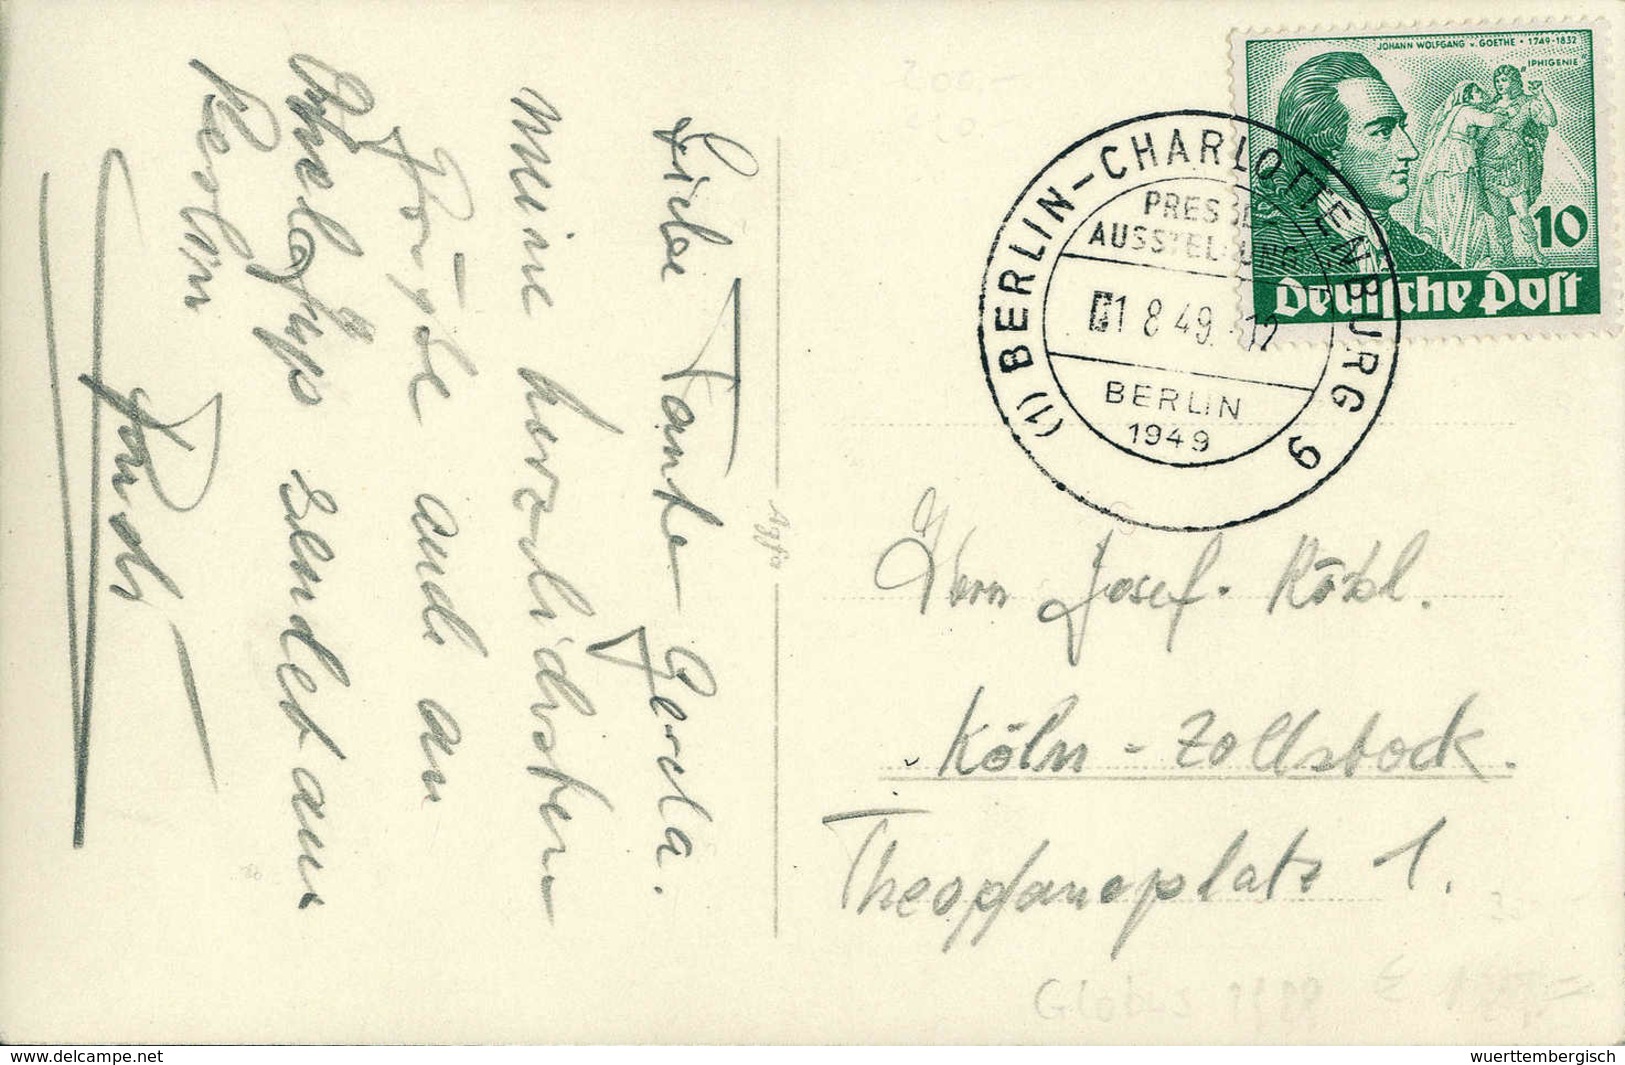 Liebe Tante Gerda.
Meine herzlichsten
Grüße auch an
Onkel Jupp sendet aus
Berlin
JOHANN WOLFGANG v. GOETHE · 1749-1832
"IPHIGENIE"
10
Deutsche Post
(1) BERLIN-CHARLOTTENBURG 9
PRESSE
AUSSTELLUNG
1 8 49. 12
BERLIN
1949
Agfa
Herrn Josef
Köln - Zollstock.
Theophanoplatz 1.
Globus
www.delcampe.net
wuerttembergisch